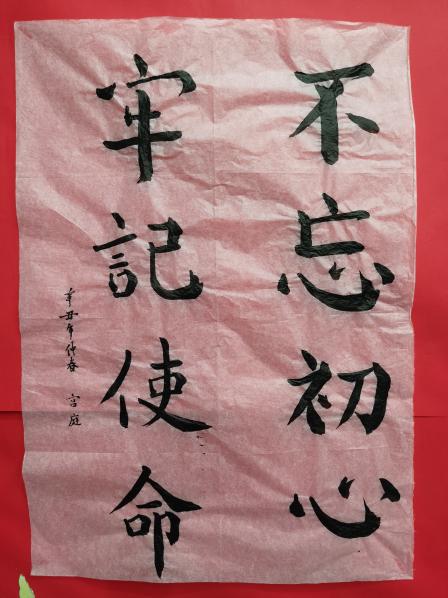 不忘初心
牢記使命
辛丑年仲春 宫庭